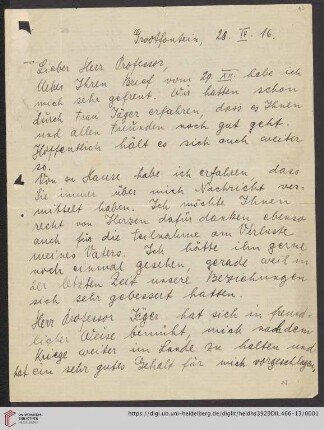 Grootfontein, 28. IV. 16.
Lieber Herr Professor,
Ueber Ihren Brief vom 29. XII. habe ich
mich sehr gefreut. Wir hatten schon
durch Frau Jäger erfahren, dass es Ihnen
und allen Freunden noch gut geht.
Hoffentlich hält es sich auch weiter
so.
Von zu Hause habe ich erfahren, dass
Sie immer über mich Nachricht ver-
mittelt haben. Ich möchte Ihnen
recht von Herzen dafür danken ebenso
auch für die Teilnahme am Verluste
meines Vaters. Ich hätte ihn gerne
noch einmal gesehen, gerade weil in
der letzten Zeit unsere Beziehungen
sich sehr gebessert hatten.
Herr Professor Jäger hat sich in freund-
licher Weise bemüht, mich nach dem
Kriege weiter im Lande zu halten und
hat ein sehr gutes Gehalt für mich vorgeschlagen,
https://digi.ub.uni-heidelberg.de/diglit/heidhs3929DIL466-13/0001